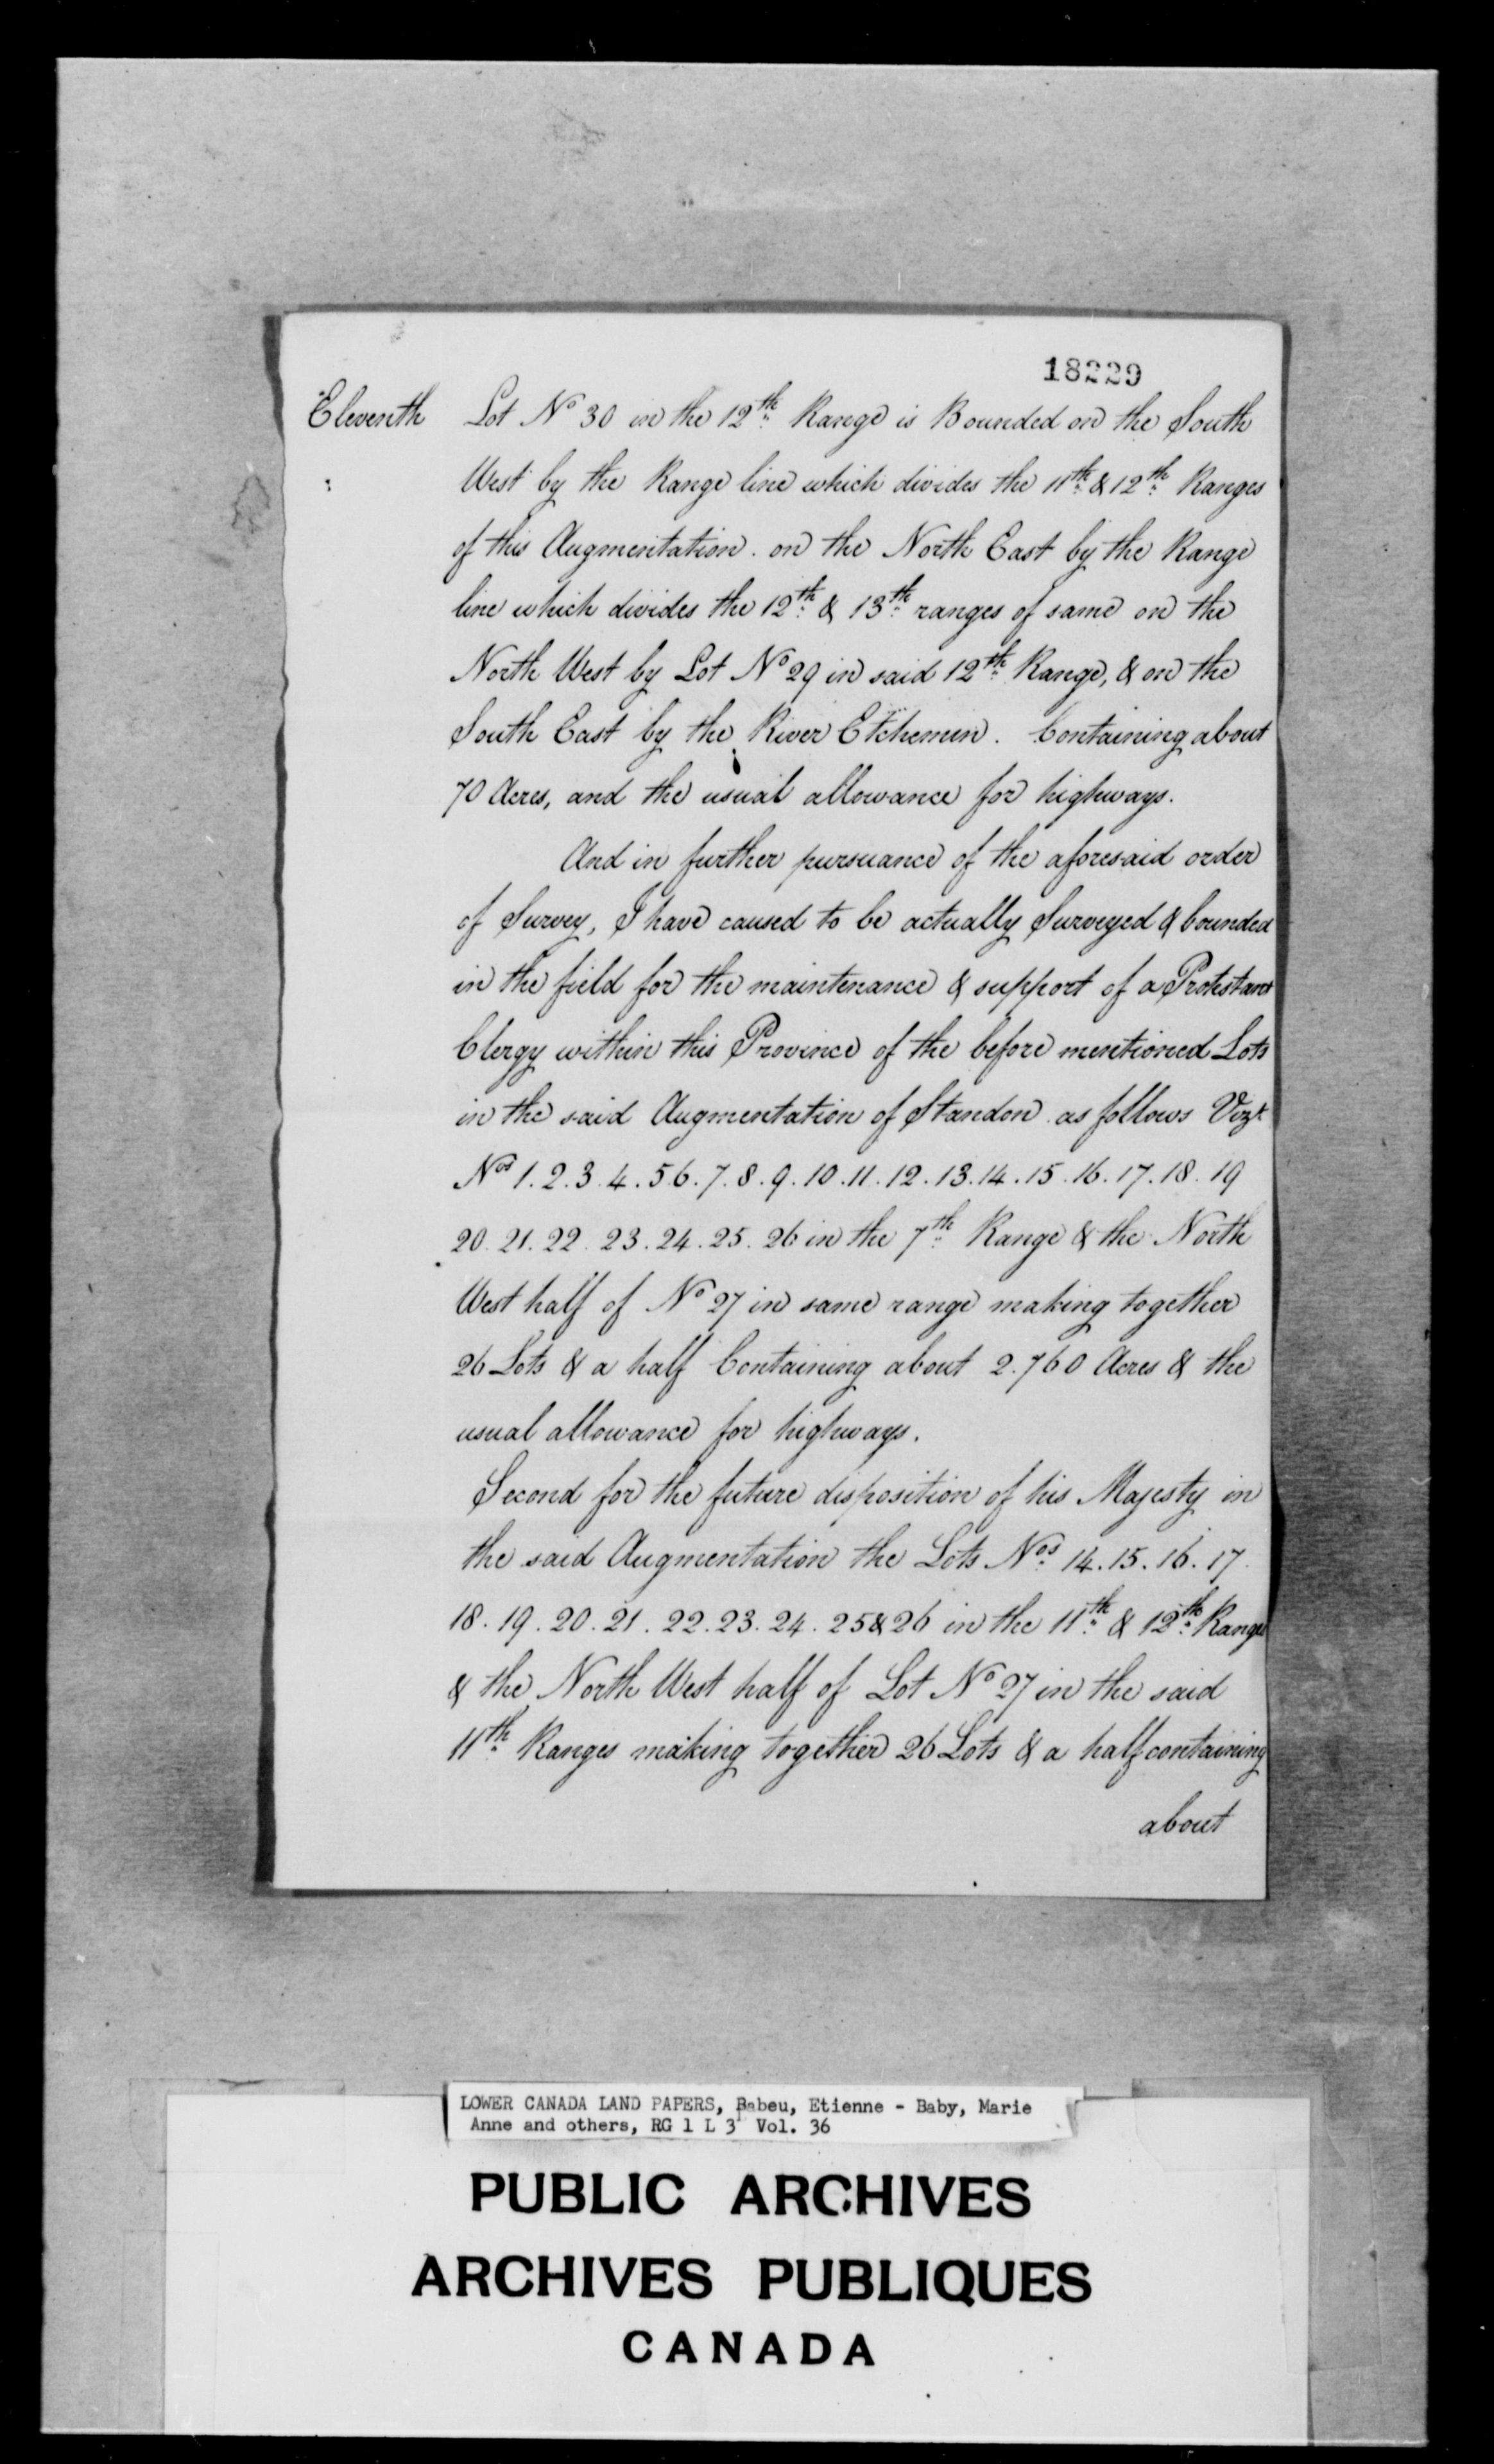 18229
Eleventh Lot No 30 in the 12th Range is Bounded on the South
West by the Range line which divides the 11th & 12th Ranges
of this Augmentation. on the North East by the Range
line which divides the 12th & 13th ranges of same on the
North West by Lot No 29 in said 12th Range, & on the
South East by the River Etchemin. Containing about
70 Acres, and the usual allowance for highways.
And in further pursuance of the aforesaid order
of Survey, I have caused to be actually Surveyed & bounded
in the field for the maintenance & support of a Protestant
Clergy within this Province of the before mentioned Lots
in the said Augmentation of Standon as follows Vizt
Nos 1. 2. 3. 4. 5 6. 7. 8. 9. 10. 11. 12. 13. 14. 15. 16. 17. 18. 19
20. 21. 22. 23. 24. 25. 26 in the 7th Range & the North
West half of No 27 in same range making together
26 Lots & a half Containing about 2.760 Acres & the
usual allowance for highways.
Second for the future disposition of his Majesty in
the said Augmentation the Lots Nos 14. 15. 16. 17.
18. 19. 20. 21. 22. 23. 24. 25 & 26 in the 11th & 12th Ranges
& the North West half of Lot No 27 in the said
11th Ranges making together 26 Lots & a half containing
about
LOWER CANADA LAND PAPERS, Babeu, Etienne - Baby, Marie
Anne and others, RG 1 L 3 Vol. 36
PUBLIC ARCHIVES
ARCHIVES PUBLIQUES
CANADA